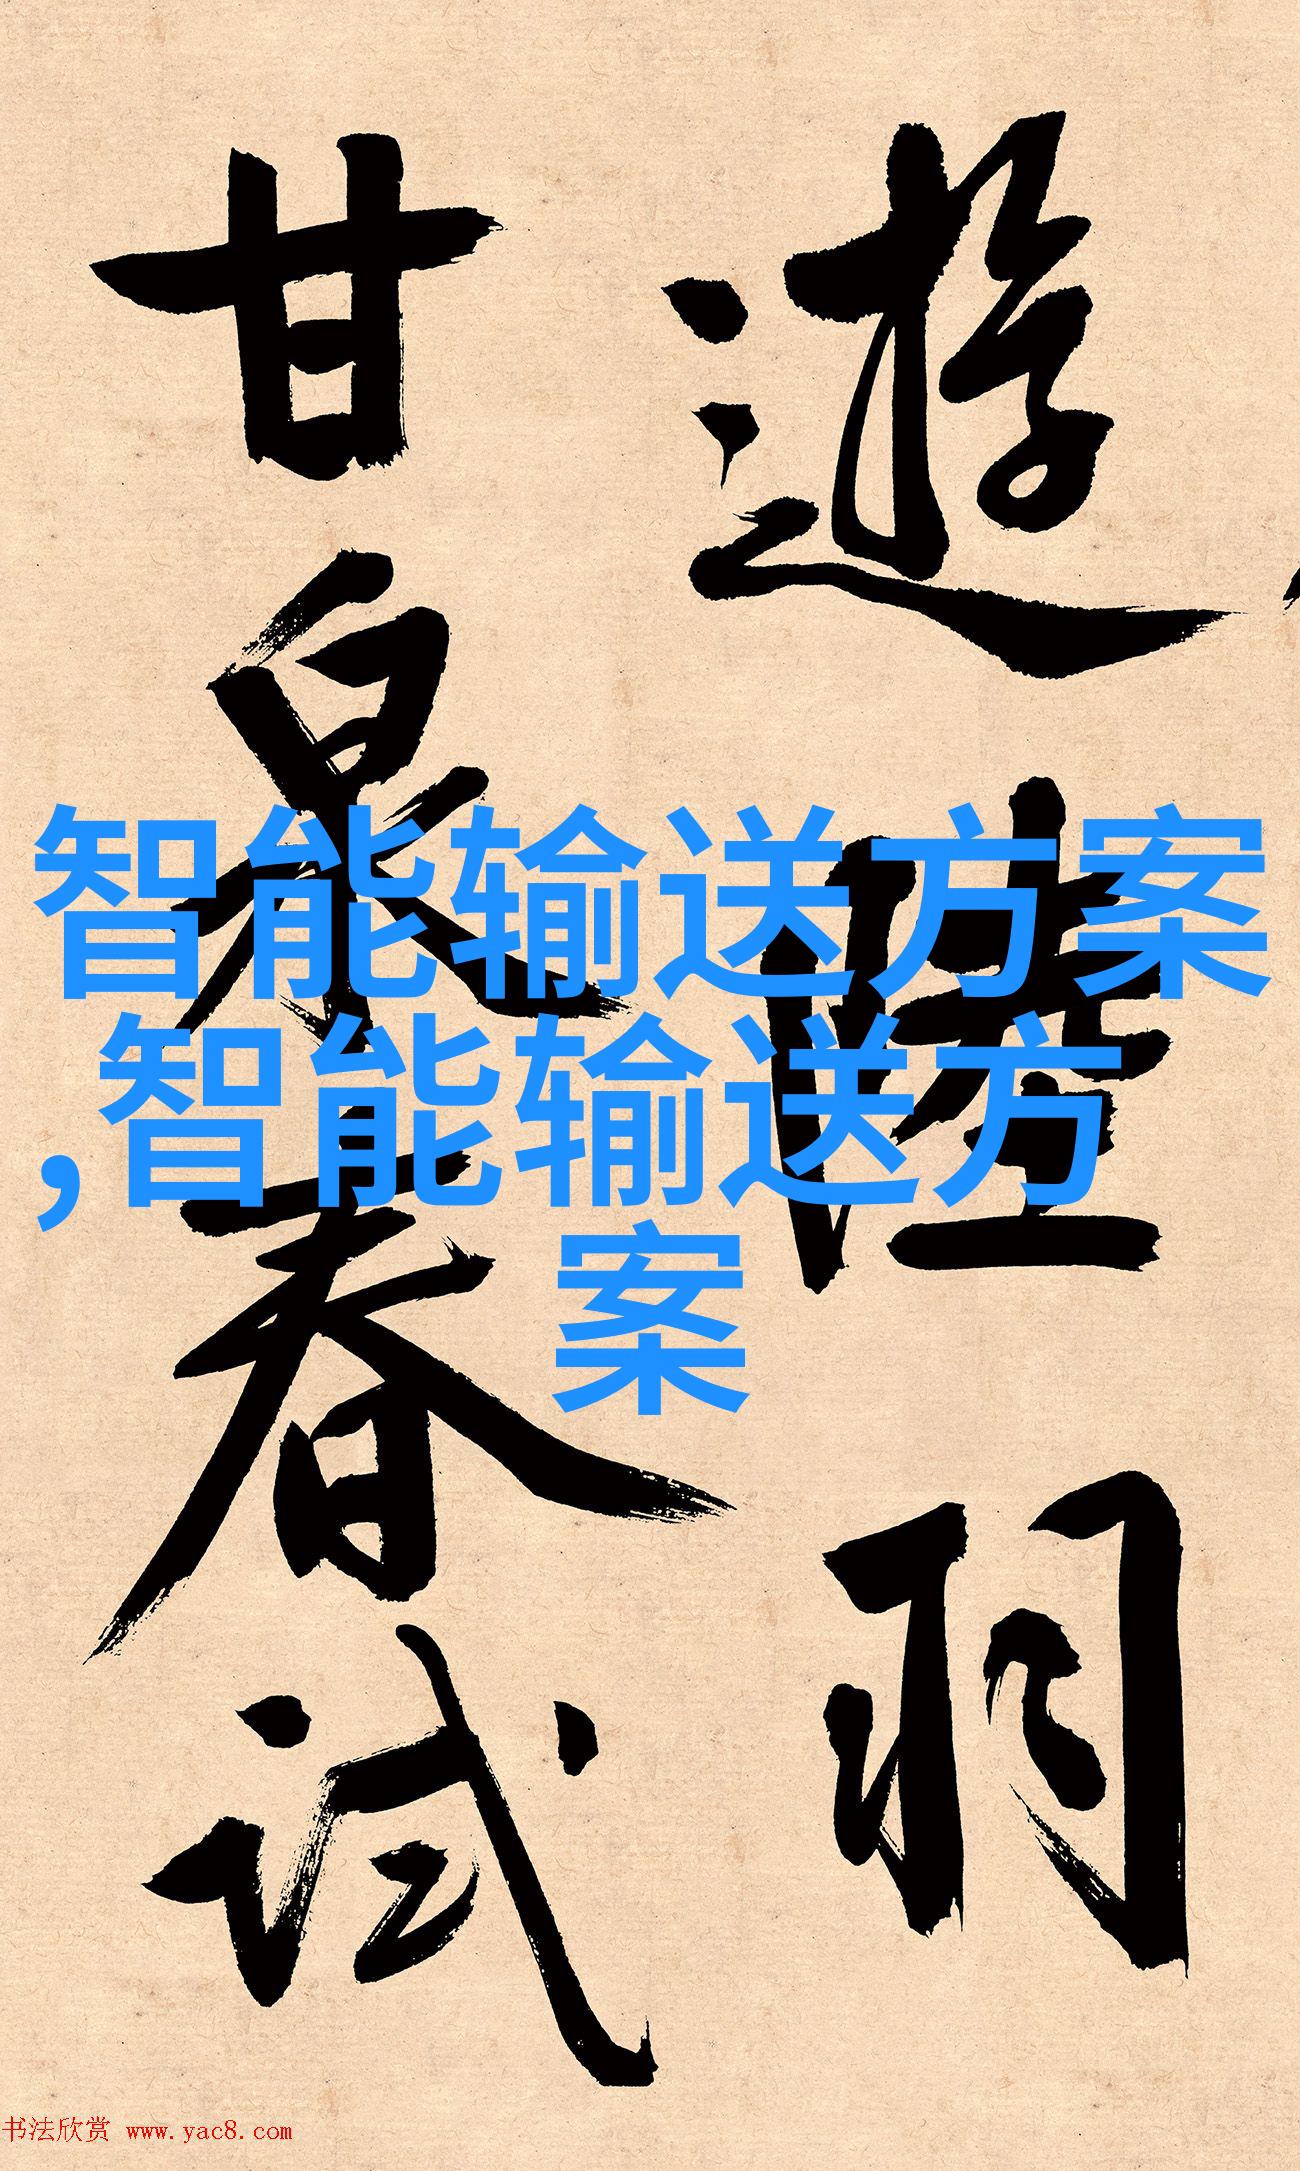 遊陸羽
甘泉春試
智能输送方案
,智能输送方
案
书法欣赏 www.yac8.com